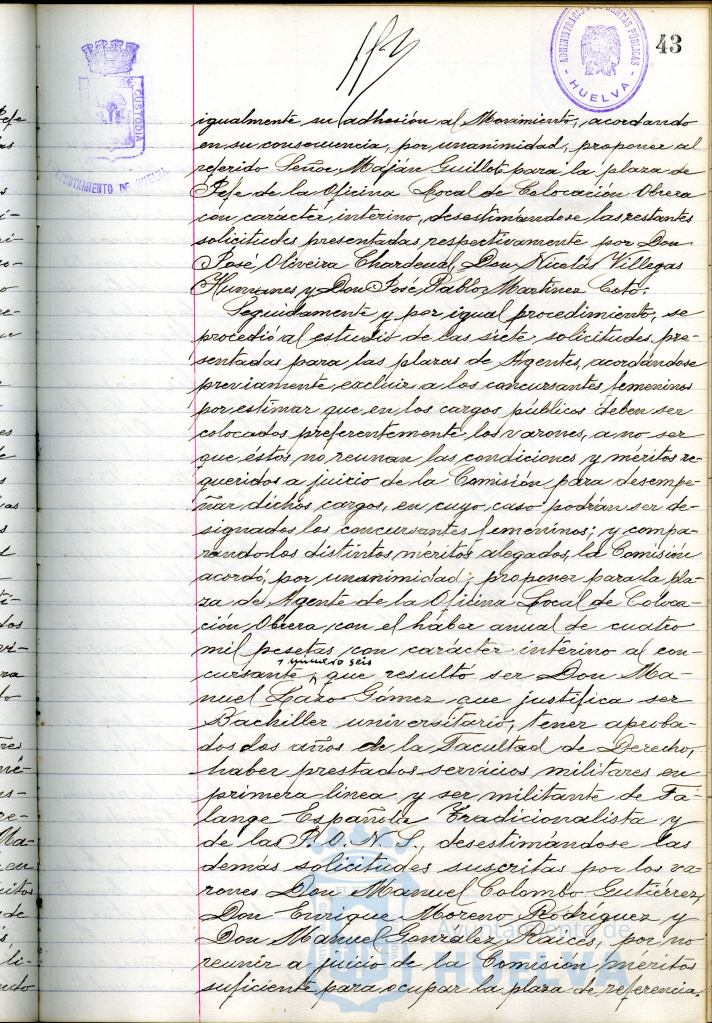 43
ADMINISTRACION DE RENTAS PUBLICAS
HUELVA
CUSTODIA
AYUNTAMIENTO DE HUELVA
igualmente su adhesión al Movimiento, acordando
en su consecuencia, por unanimidad, proponer al
referido Señor Maján Guillot para la plaza de
Jefe de la Oficina Local de Colocación Obrera
con carácter interino, desestimándose las restantes
solicitudes presentadas respectivamente por Don
José Oliveira Chardenal, Don Nicolás Villegas
y Don José Pablo Martinez Coto.
Seguidamente y por igual procedimiento, se
procedió al estudio de las siete solicitudes pre-
sentadas para las plazas de Agentes, acordándose
previamente excluir a los concursantes femeninos
por estimar que en los cargos públicos deben ser
colocados preferentemente los varones, a no ser
que éstos no reunan las condiciones y méritos re-
queridos a juicio de la Comisión para desempe-
ñar dichos cargos, en cuyo caso podrían ser de-
signados los concursantes femeninos; y compa-
rando los distintos méritos alegados, la Comisión
acordó, por unanimidad, proponer para la pla-
za de Agente de la Oficina Local de Coloca-
ción Obrera con el háber anual de cuatro
mil pesetas con carácter interino al con-
número seis
cursante que resultó ser Don Ma-
nuel Lazo Gómez que justifica ser
Bachiller universitario, tener aproba-
dos dos años de la Facultad de Derecho,
haber prestados servicios militares en
primera linea y ser militante de Fa-
lange Española Tradicionalista y
de las J.O.N.S., desestimándose las
demás solicitudes suscritas por los va-
rones Don Manuel Colombo Gutiérrez,
Don Enrique Moreno Rodríguez y
Don Manuel González Raices, por no
reunir a juicio de la Comisión méritos
suficiente para ocupar la plaza de referencia.
Ayuntamiento de
HUELVA